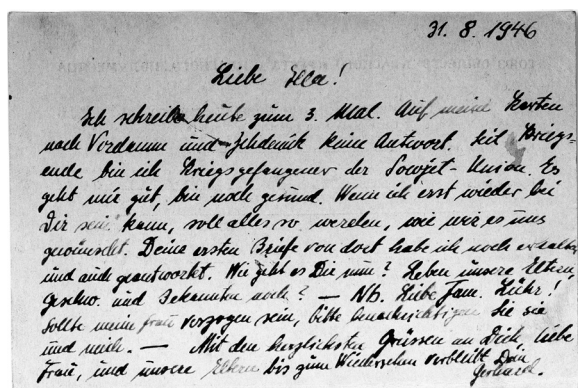 31. 8. 1946
Liebe Ilse!
Ich schreibe heute zum 3. Mal. Auf meine Karten
nach Vordamm und Zehdenick keine Antwort. Seit Kriegs-
ende bin ich Kriegsgefangener der Sowjet-Union. Es
geht mir gut, bin noch gesund. Wenn ich erst wieder bei
Dir sein kann, soll alles so werden, wie wir es uns
gewünscht. Deine ersten Briefe von dort habe ich noch erhalten
und auch geantwortet. Wie geht es Dir nun? Leben unsere Eltern,
Geschw. und Bekannten noch? — Nb. Liebe Fam. Lühr!
sollte meine Frau verzogen sein, bitte benachrichtigen Sie sie
und mich. — Mit den herzlichsten Grüssen an Dich, liebe
Frau, und unsere Eltern bis zum Wiedersehen verbleibt Dein
Gerhard.